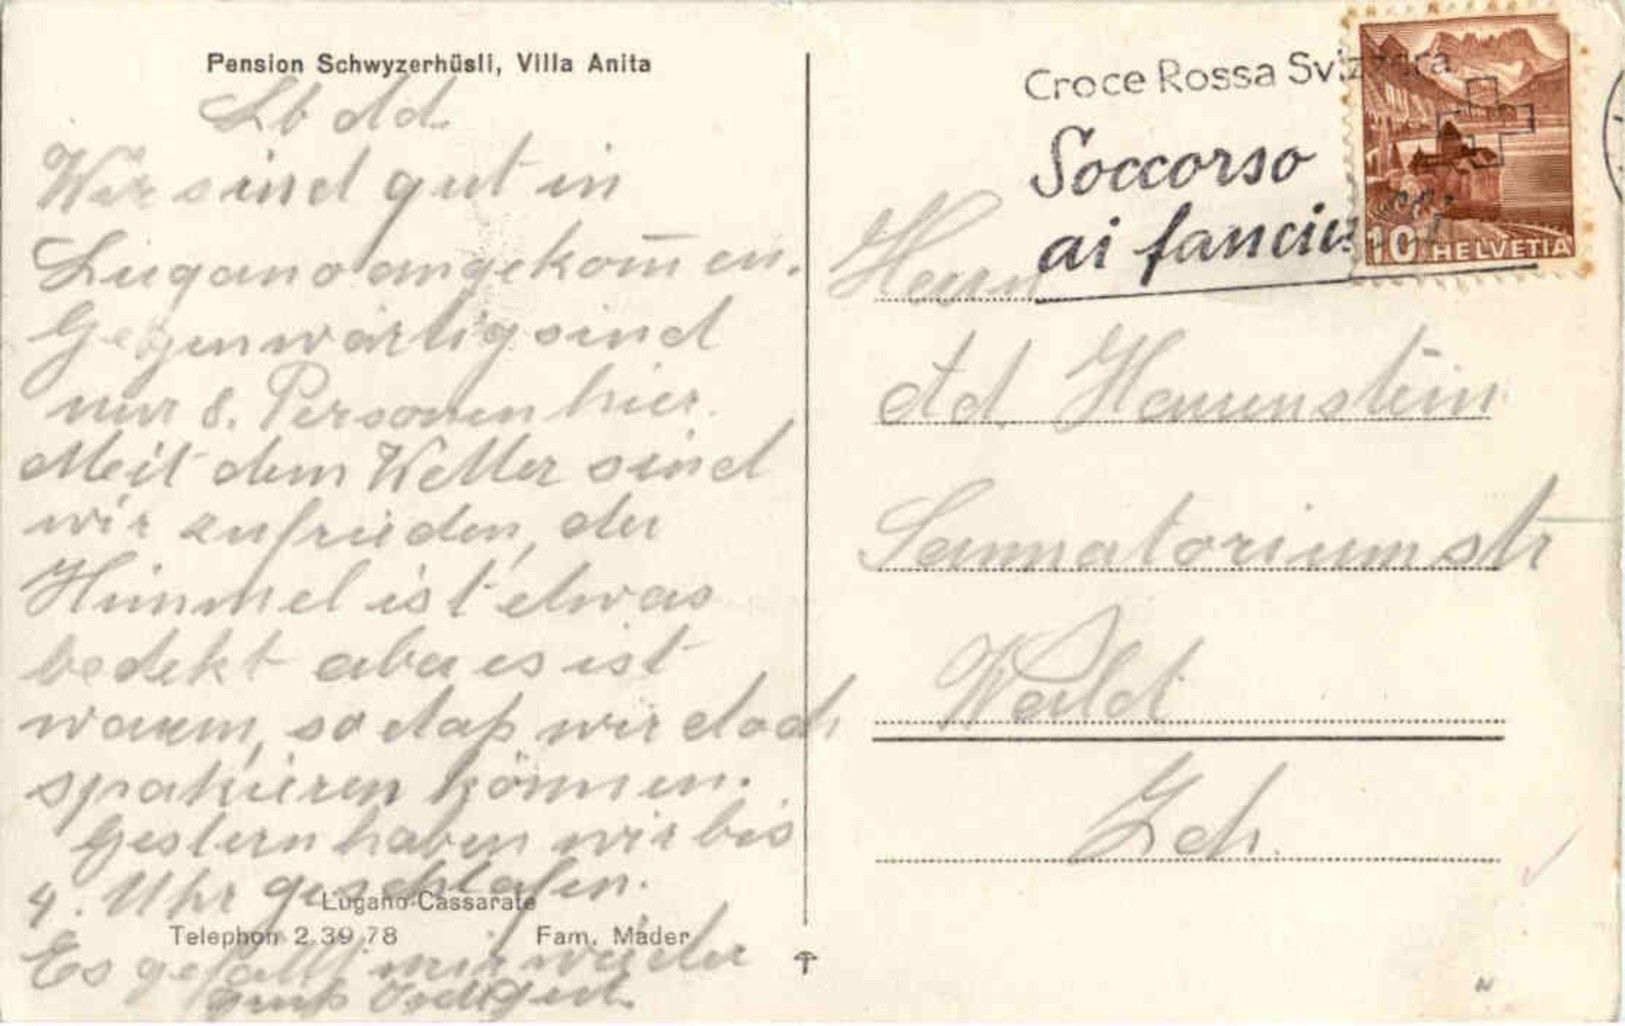 Pension Schwyzerhüsli, Villa Anita
Lb Ad.
Wir sind gut in
Lugano angekom̄en.
Gegenwärtig sind
nur 8. Personen hier.
Mit dem Wetter sind
wir zufrieden, der
Himmel ist etwas
bedekt aber es ist
warm, so daß wir doch
spazieren können.
Gestern haben wir bis
4. Uhr geschlafen.
Lugano-Cassarate
Telephon 2.39.78 Fam. Mäder
Es gefällt mir wieder
gut.
Croce Rossa Svizzera
Soccorso
ai fanciu
10 HELVETIA
Herrn
Ad. Hauenstein
Sannatoriumstr
Wald
Zch.